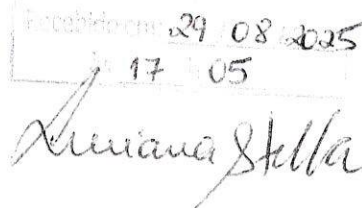 Recebido em: 29 08 2025
17 05
Luciana Stella